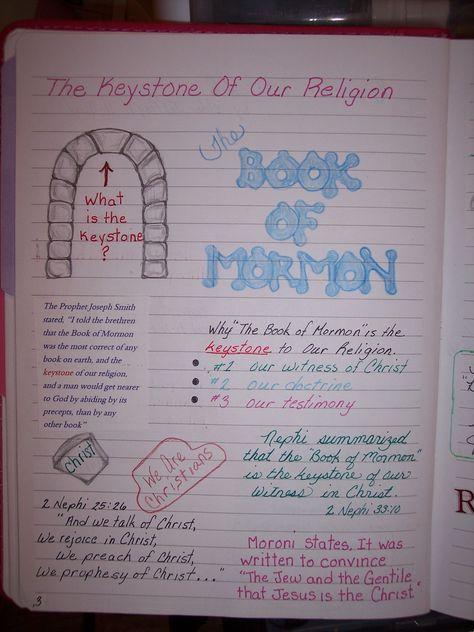 The Keystone Of Our Religion
What
is the
Keystone
?
The
BOOK
OF
MORMON
The Prophet Joseph Smith
stated, "I told the brethren
that the Book of Mormon
was the most correct of any
book on earth, and the
keystone of our religion,
and a man would get nearer
to God by abiding by its
precepts, than by any
other book"
Why "The Book of Mormon" is the
keystone to Our Religion.
#1 Our witness of Christ
#2 Our doctrine
#3 Our testimony
Christ
We Are
Christians
Nephi summarized
that the "Book of Mormon"
is the keystone of our
witness in Christ.
2 Nephi 33:10
2 Nephi 25:26
"And we talk of Christ,
we rejoice in Christ,
we preach of Christ,
we prophesy of Christ..."
Moroni States, It was
written to convince
"The Jew and the Gentile
that Jesus is the Christ"
3
R